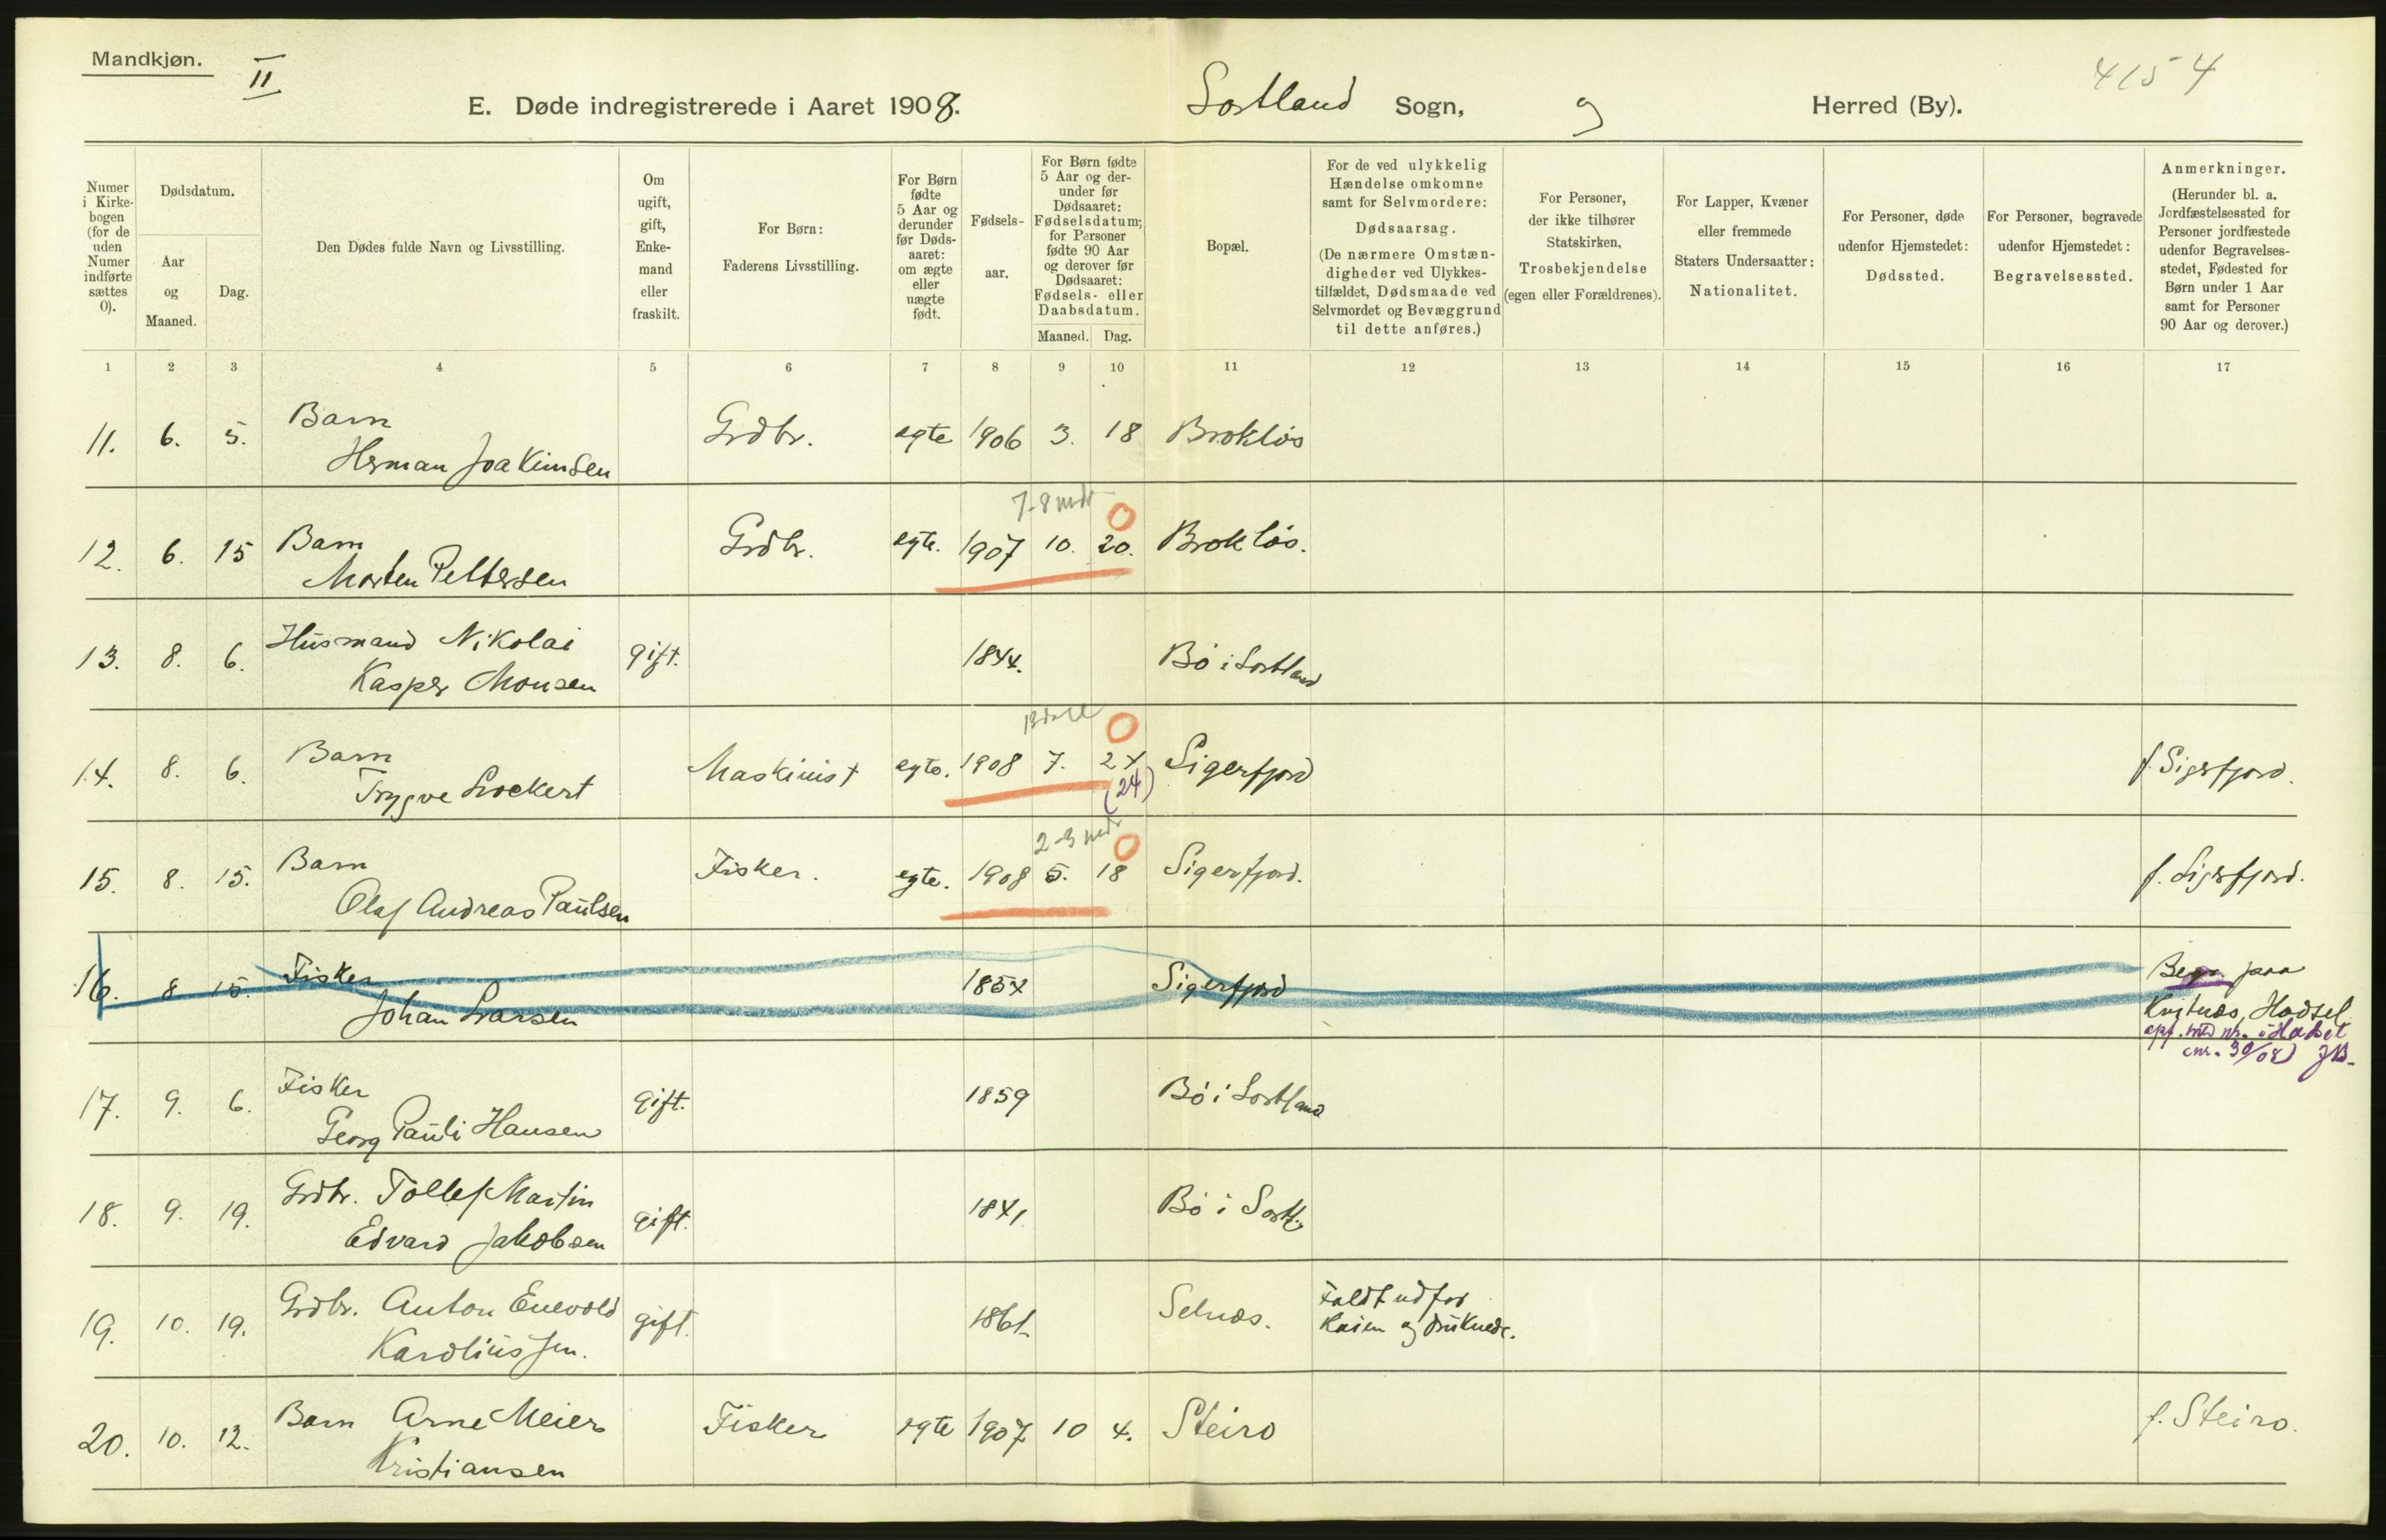 Mandkjøn.
II
4154
E. Døde indregistrerede i Aaret 1908.
Sortland Sogn, og Herred (By).
Numer i Kirke-bogen (for de uden Numer indførte sættes 0).
Dødsdatum.
Aar og Maaned.
Dag.
Den Dødes fulde Navn og Livsstilling.
Om ugift, gift, Enke-mand eller fraskilt.
For Børn:
Faderens Livsstilling.
For Børn fødte 5 Aar og derunder før Døds-aaret: om ægte eller uægte født.
Fødsels-aar.
For Børn fødte 5 Aar og der-under før Dødsaaret: Fødselsdatum; for Personer fødte 90 Aar og derover før Dødsaaret: Fødsels- eller Daabsdatum.
Maaned. Dag.
Bopæl.
For de ved ulykkelig Hændelse omkomne samt for Selvmordere:
Dødsaarsag.
(De nærmere Omstæn-digheder ved Ulykkes-tilfældet, Dødsmaade ved Selvmordet og Bevæggrund til dette anføres.)
For Personer, der ikke tilhører Statskirken,
Trosbekjendelse
(egen eller Forældrenes).
For Lapper, Kvæner eller fremmede Staters Undersaatter:
Nationalitet.
For Personer, døde udenfor Hjemstedet:
Dødssted.
For Personer, begravede udenfor Hjemstedet:
Begravelsessted.
Anmerkninger.
(Herunder bl. a. Jordfæstelsessted for Personer jordfæstede udenfor Begravelses-stedet, Fødested for Børn under 1 Aar samt for Personer 90 Aar og derover.)
1 2 3 4 5 6 7 8 9 10 11 12 13 14 15 16 17
11. 6. 5. Barn Herman Joakimsen Grdbr. egte 1906 3. 18 Brokløs
7-8 mdr 0
12. 6. 15 Barn Morten Pettersen Grdbr. egte. 1907 10. 20. Brokløs.
13. 8. 6. Husmand Nikolai Kasper Monsen gift. 1844. Bø i Sortland
0
14. 8. 6. Barn Trygve Lockert Maskinist egte. 1908 7. 24 Sigerfjord f. Sigerfjord.
(24)
2-3 mdr 0
15. 8. 15. Barn Olaf Andreas Paulsen Fisker. egte. 1908 5. 18 Sigerfjord. f. Sigerfjord.
16. 8 15. Fisker Johan Larsen 1854 Sigerfjord Begr. paa
Hadsel.
opf. med nr. i Hadsel
(nr. 30/08)
17. 9. 6. Fisker Georg Pauli Hansen gift. 1859 Bø i Sortland
18. 9. 19. Grdbr. Tollef Martin Edvard Jakobsen gift. 1841 Bø i Sortl.
19. 10. 19. Grdbr. Anton Enevold Karoliussen. gift. 1861. Selnæs. Faldt ud for Kaien og druknede.
20. 10. 12. Barn Arne Meier Kristiansen Fisker egte 1907 10 4. Steiro f. Steiro.